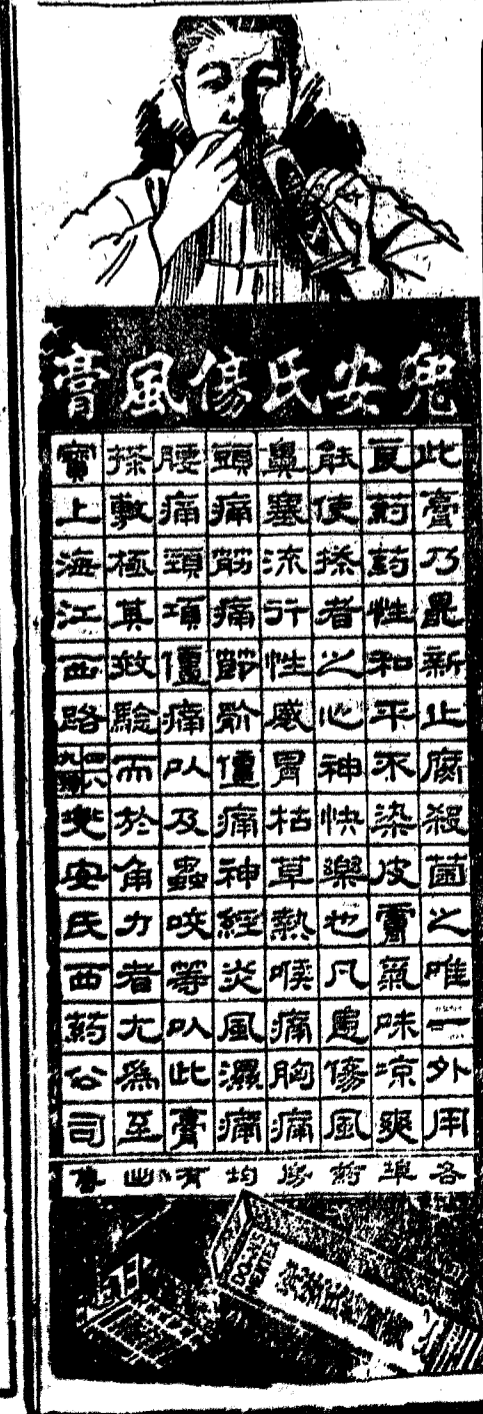 兜安氏傷風膏
此膏乃最新止腐殺菌之唯一外用
良药药性和平不染皮膚氣味凉爽
能使搽者之心神快樂也凡患傷風
鼻塞流行性感冒枯草熱喉痛胸痛
頭痛筋痛節骱僵痛神經炎風濕痛
腰痛頸項僵痛以及蟲咬等以此膏
搽敷極其效驗而於角力者尤為至
寶上海江西路四八九號兜安氏西药公司
各埠药房均有出售
DOAN'S